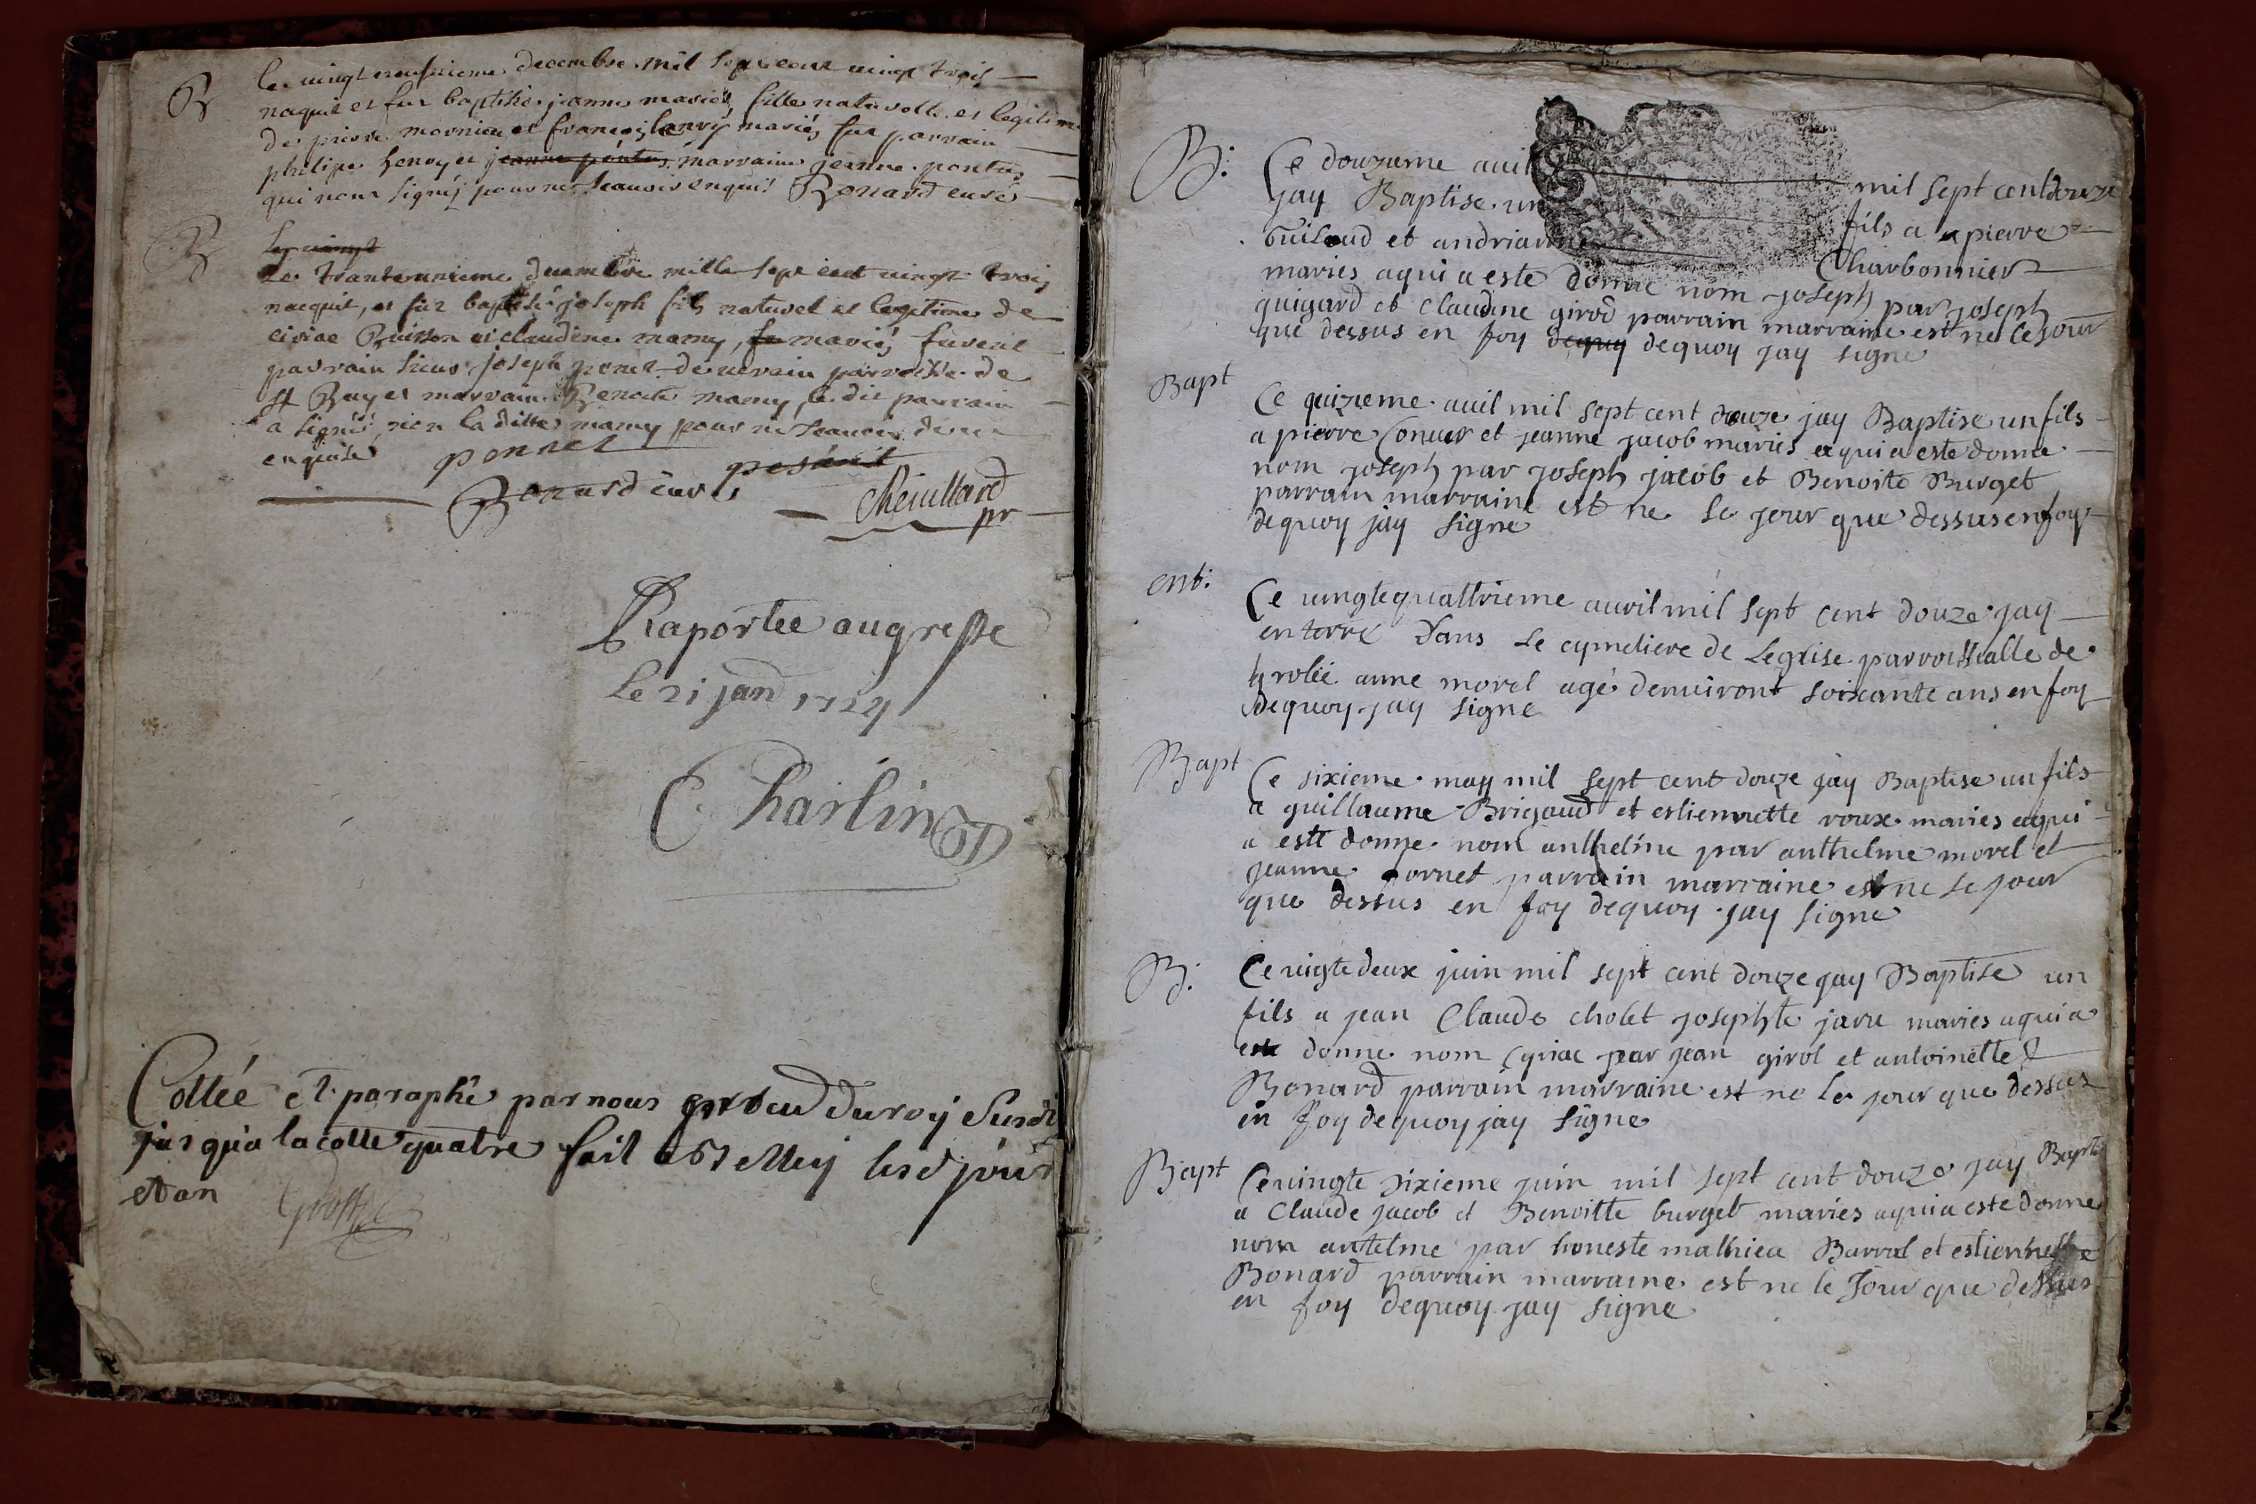 B
le vingt neufvieme decembre mil sept cent vingt trois
naquit et fut baptisée jeanne marie fille naturelle et legitime
de pierre mornieu et françoise mariés fut parrain
philipe henry et jeanne pontus marraine jeanne pontus
qui nont signéz pour ne scauoir enquis Bonard curé
B
le vingt
Le trante unieme decembre mille sept cent vingt trois
nacquit, et fut baptisé joseph fils naturel et legitime de
ciriac Buisson et claudine mamy, fu mariés furent
parrain sieur joseph ponet de parroisse de
st et marraine Benoite mamy, le dit parrain
a signé, non la ditte mamy pour ne scauoir de ce
enquise ponnet
Bonard curé
pr
Raportée au greffe
le 21 janr 1724
Charlin
Cottéé et paraphé par nous du roy
jusqua la cotte quatre fait a Belley lesd jour
et an
B:
Ce douzieme auil mil sept cent douze
jay Baptise un fils a pierre
Guilaud et andrianne Charbonnier
maries aqui a este donne nom joseph par joseph
guigard et claudine girod parrain marraine est ne le jour
que dessus en foy dequoy dequoy jay signe
Bapt
Ce quizieme auil mil sept cent douze jay Baptise un fils
a pierre et jeanne jacob maries aqui a este donne
nom joseph par joseph jacob et Benoite Burget
parrain marraine est ne le jour que dessus en foy
dequoy jay signe
ent:
Ce uingtequattrieme auril mil sept cent douze jay
enterré dans le cymetiere de Leglise parroissialle de
anne morel agé denuiront soixante ans en foy
dequoy jay signe
Bapt
Ce sixieme may mil sept cent douze jay Baptise un fils
a guillaume Brigaud et estiennette roux maries aqui
a este donne nom anthelme par anthelme morel et
jeanne parrain marraine est ne le jour
que dessus en foy dequoy jay signe
B:
Ce uigtedeux juin mil sept cent douze jay Baptise un
fils a jean Claude cholet josephte maries aqui a
este donne nom Cyriac par jean girod et antoinette
Bonard parrain marraine est ne le jour que dessus
en foy dequoy jay signe
Bapt
Ce uingte sixieme juin mil sept cent douze jay Bapt
a Claude jacob et Benoitte burget maries aqui a este donne
nom antelme par honeste mathieu Barral et estiennette
Bonard parrain marraine est ne le Jour que dessus
en foy dequoy jay signe